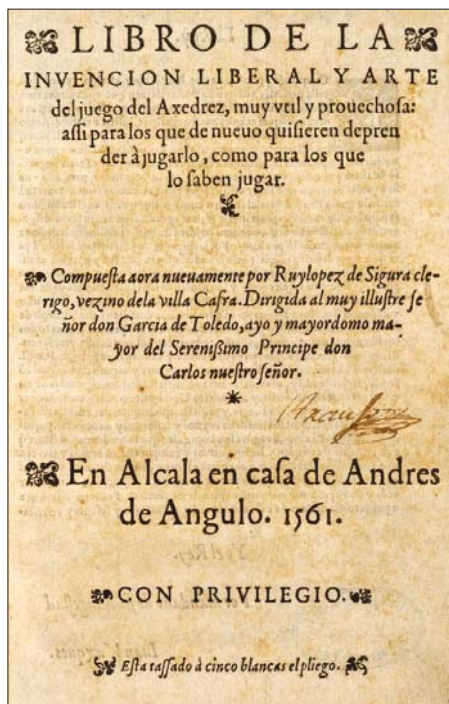 LIBRO DE LA
INVENCION LIBERAL Y ARTE
del juego del Axedrez, muy vtil y prouechoſa:
aſſi para los que de nueuo quiſieren depren
der à jugarlo, como para los que
lo ſaben jugar.
Compueſta aora nueuamente por Ruylopez de Sigura cle-
rigo, vezino dela villa Cafra. Dirigida al muy illuſtre ſe
ñor don Garcia de Toledo, ayo y mayordomo ma-
yor del Sereniſsimo Principe don
Carlos nueſtro ſeñor.
En Alcala en caſa de Andres
de Angulo. 1561.
CON PRIVILEGIO.
Eſta taſſado à cinco blancas el pliego.